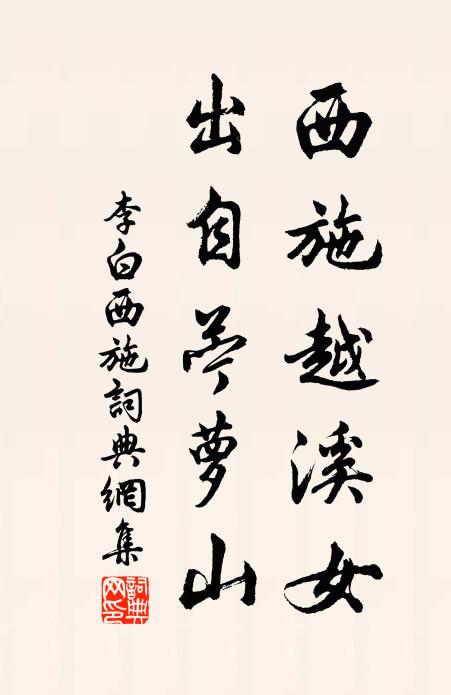 西施越溪女
出自苧萝山
李白西施詞典網集
詞典网印